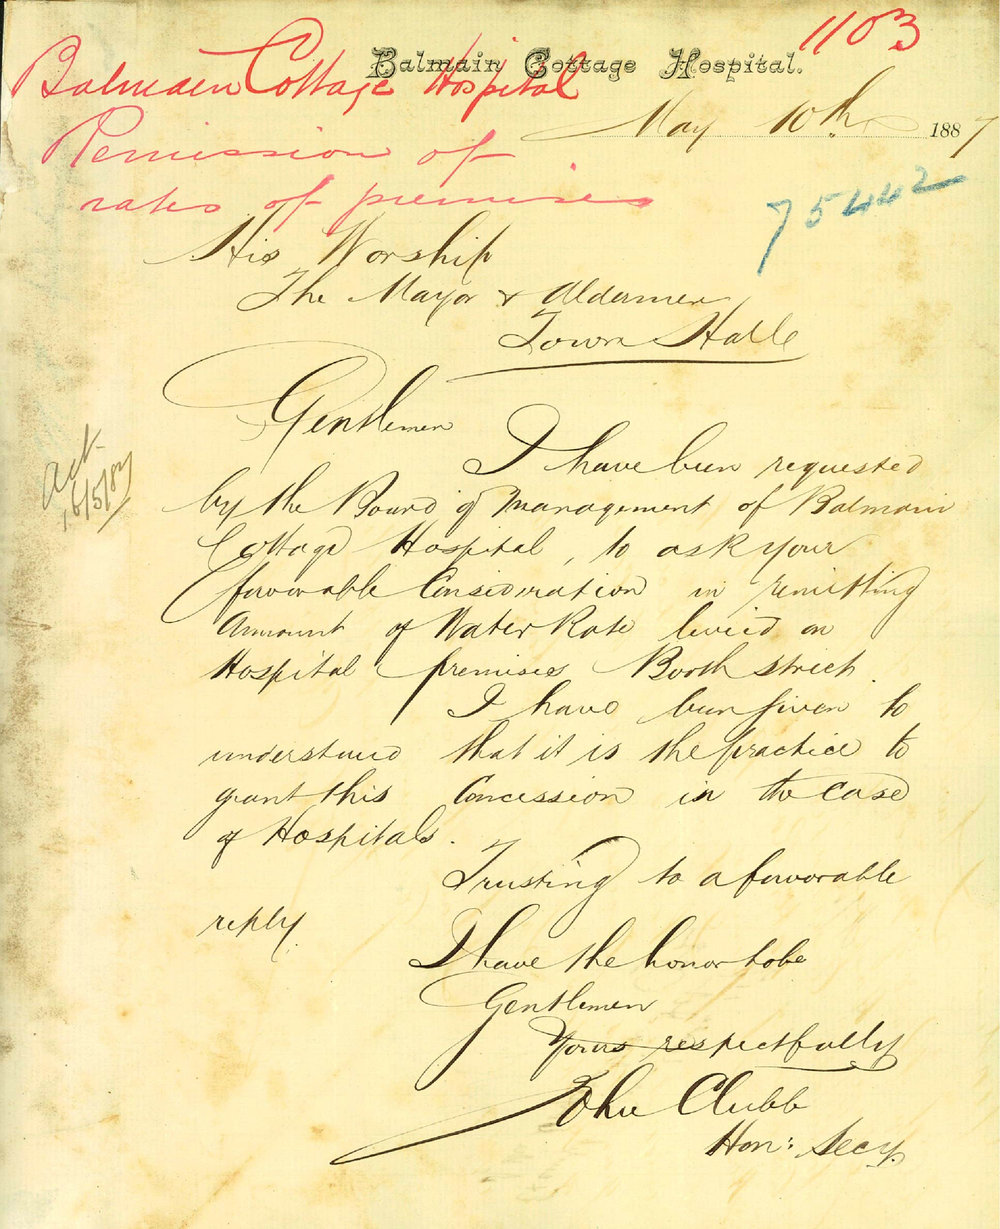 1103
Balmain Cottage Hospital.
Balmain Cottage Hospital
May 10th 1887
Remission of
rates of premises
75442
His Worship
The Mayor & Aldermen
Town Hall
Gentlemen
I have been requested
by the Board of Management of Balmain
Cottage Hospital, to ask your
favorable Consideration in remitting
Amount of Water Rate levied on
Hospital premises Booth street.
I have been given to
understand that it is the practice to
grant this Concession in the case
of Hospitals.
Trusting to a favorable
reply.
I have the honor to be
Gentlemen
Yours respectfully
John Clubb
Hon: Secy.
16/5/87